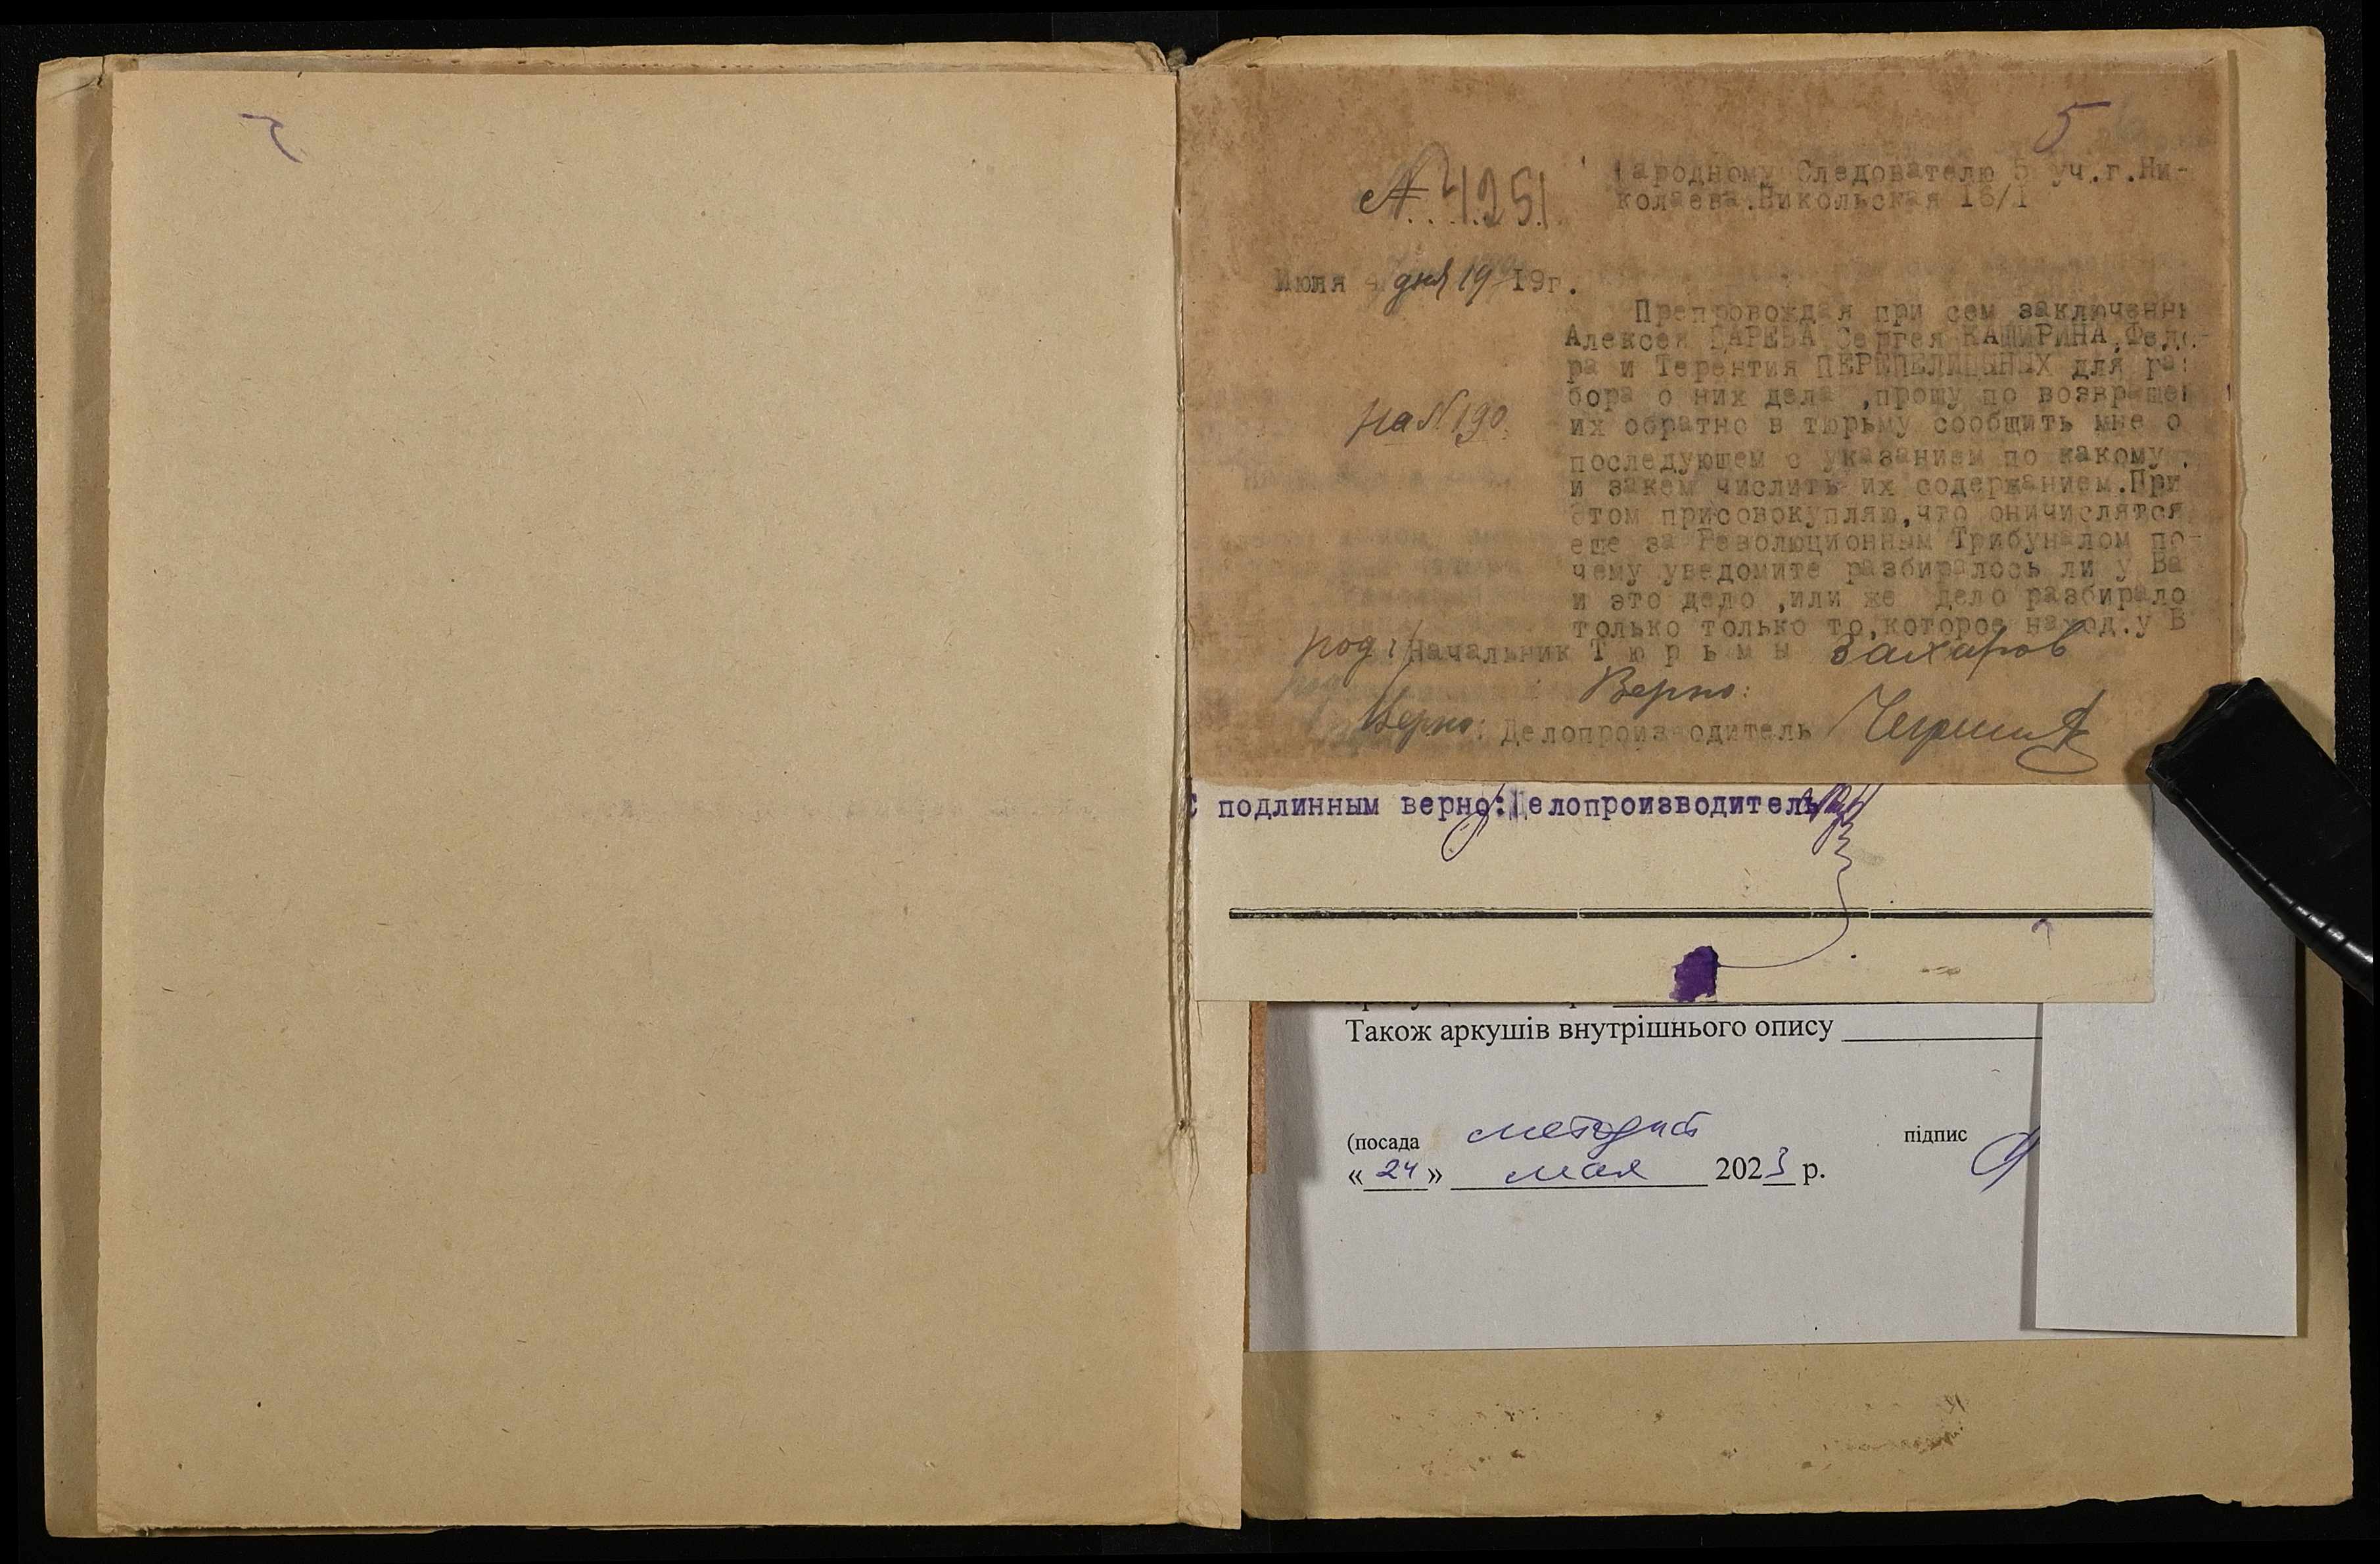 5
Народному Следователю 5 уч.г.Ни-
колаева.Никольская 16/I
№ 4251
Июня дня 19 19г.
Препровождая при сем заключенны
Алексея ЦАРЕВА Сергея КАШИРИНА,Федо-
ра и Терентия ПЕРЕПЕЛИЦЫНЫХ для раз
бора о них дела ,прошу по возвращен
на № 190.
их обратно в тюрьму сообщить мне о
последующем с указанием по какому
и закем числить их содержанием.При
этом присовокупляю,что оничислятся
еще за Революционным Трибуналом по-
чему уведомите разбиралось ли у Ва
и это дело ,или же дело разбирало
только только то,которое наход.у В
под: Начальник Тюрьмы Захаров
Верно:
Верно: Делопроизводитель
С подлинным верно:Делопроизводитель
Також аркушів внутрішнього опису
(посада методист підпис
«24» мая 2023 р.